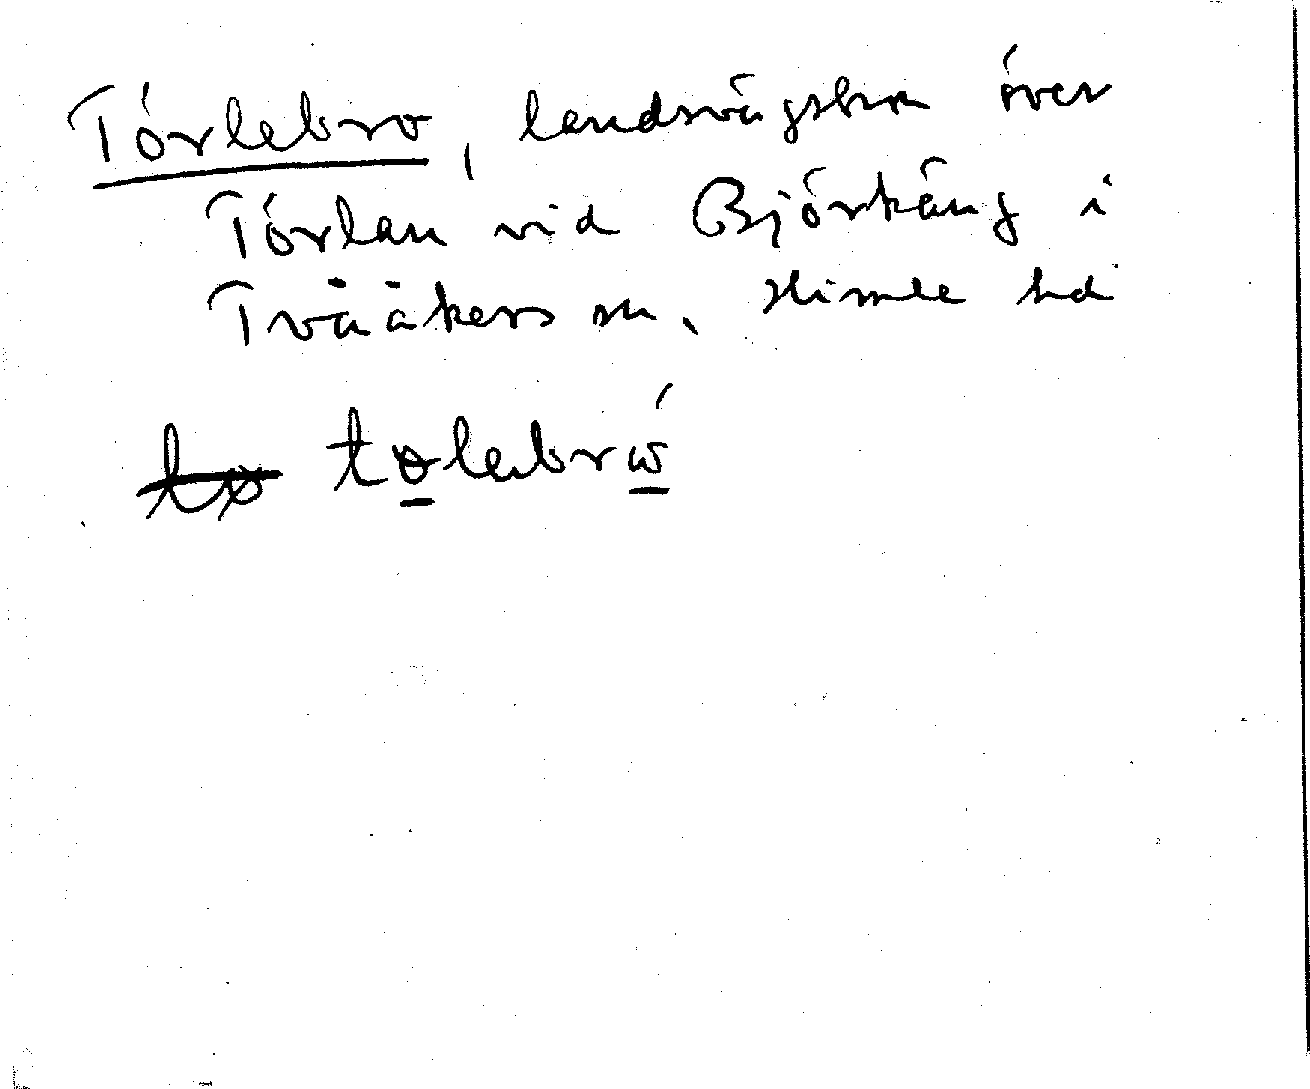 Törlebro, landsvägsbro över
Törlan vid Björkäng i
Tvååkers sn, Himle hd
tølebrω´